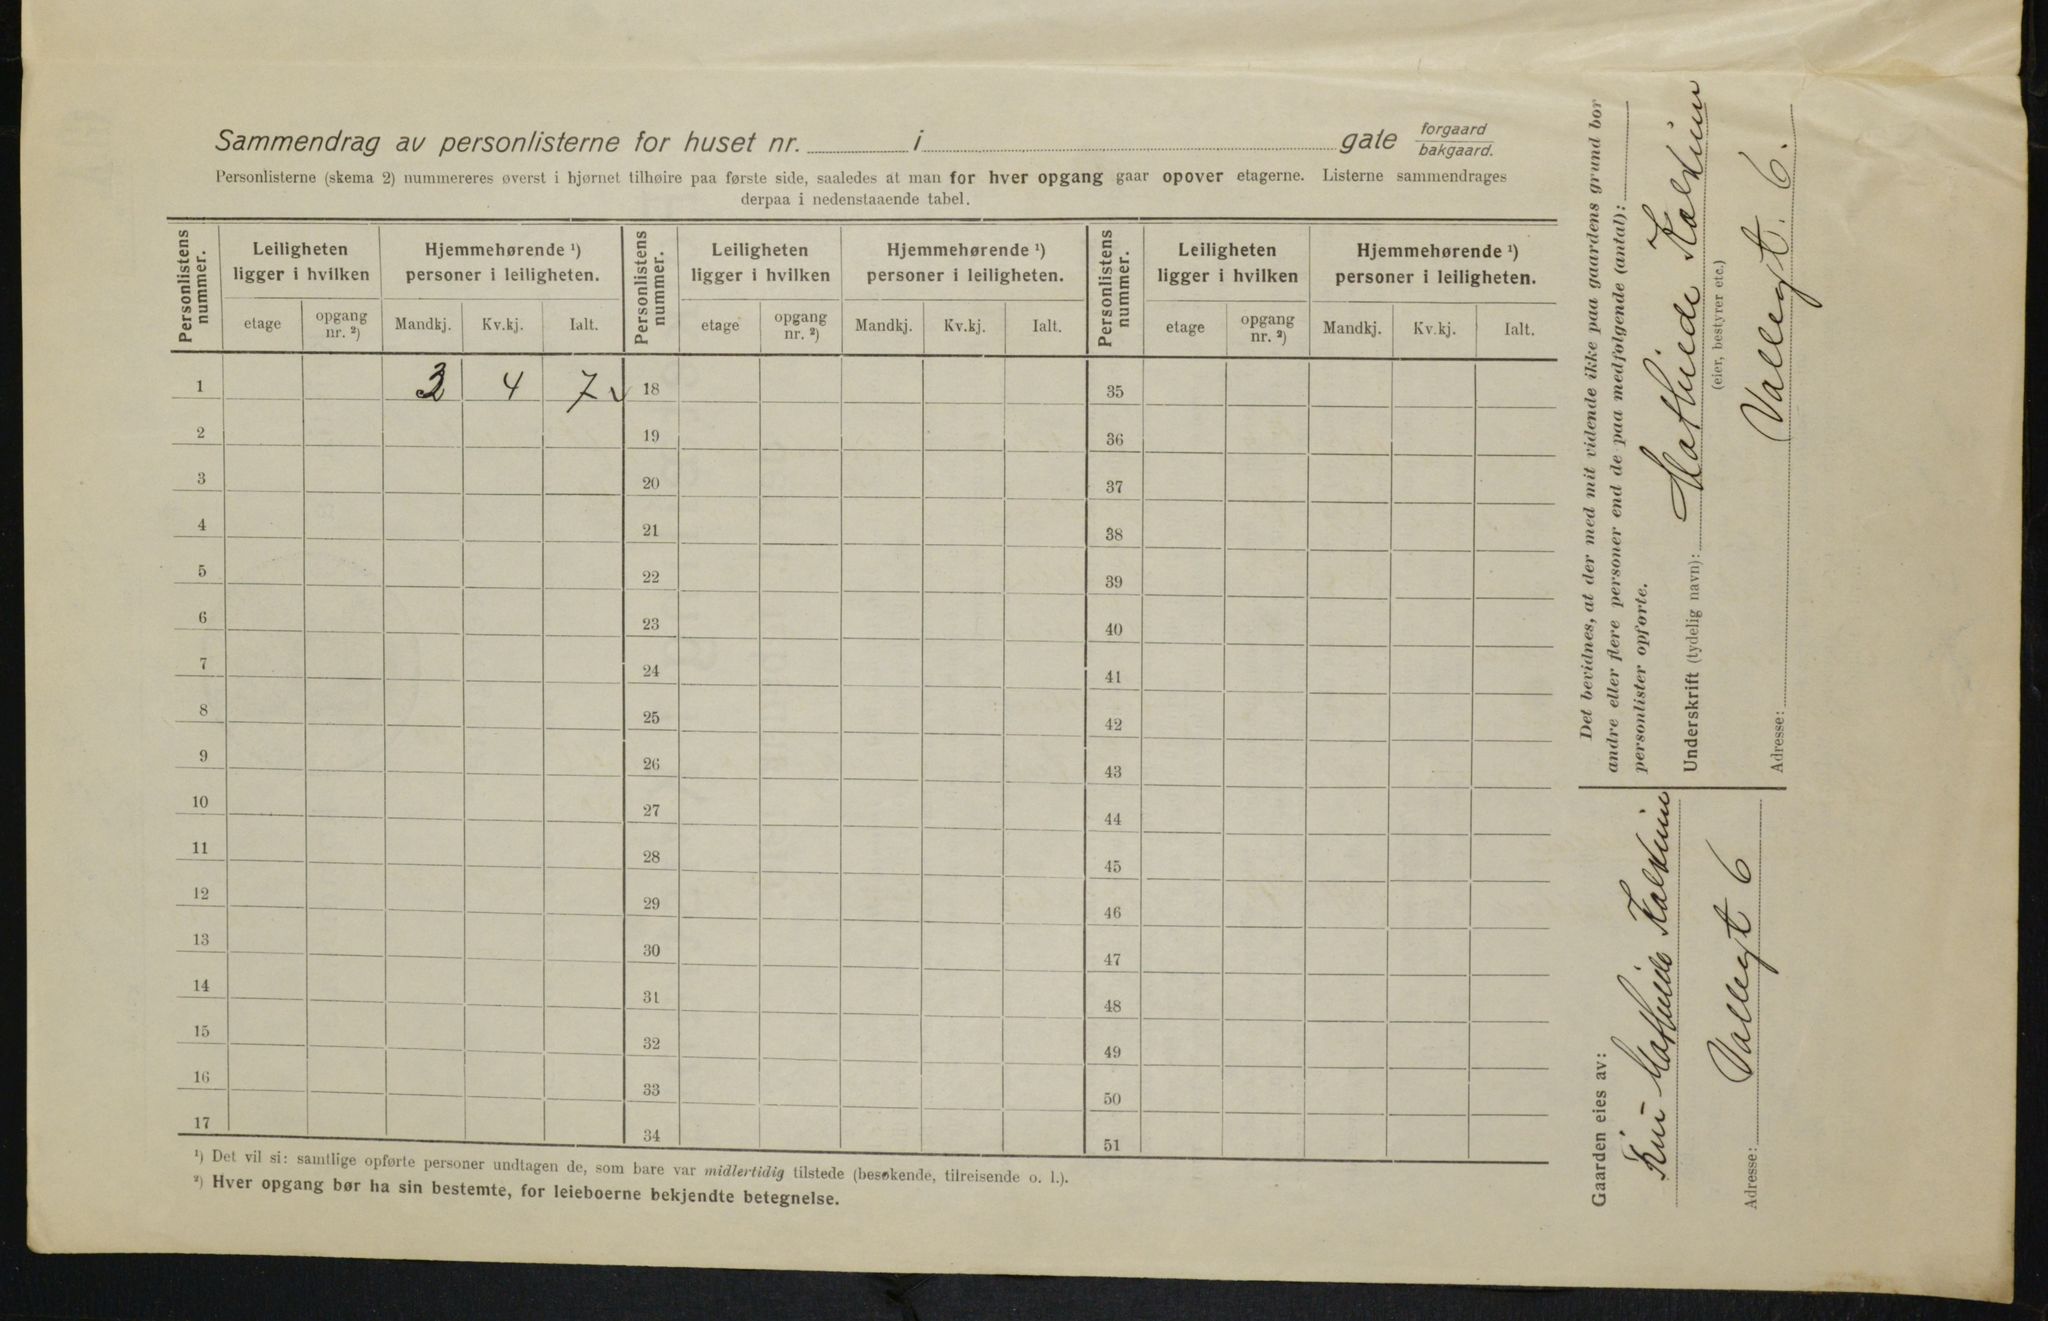 Sammendrag av personlisterne for huset nr. i gate forgaard bakgaard.
Personlisterne (skema 2) nummereres øverst i hjørnet tilhøire paa første side, saaledes at man for hver opgang gaar opover etagerne. Listerne sammendrages
derpaa i nedenstaaende tabel.
Personlistens nummer. Leiligheten ligger i hvilken Hjemmehørende ¹) personer i leiligheten. Personlistens nummer. Leiligheten ligger i hvilken Hjemmehørende ¹) personer i leiligheten. Personlistens nummer. Leiligheten ligger i hvilken Hjemmehørende ¹) personer i leiligheten.
etage opgang nr. ²) Mandkj. Kv.kj. Ialt. etage opgang nr. ²) Mandkj. Kv.kj. Ialt. etage opgang nr. ²) Mandkj. Kv.kj. Ialt.
1 3 4 7 18 35
2 19 36
3 20 37
4 21 38
5 22 39
6 23 40
7 24 41
8 25 42
9 26 43
10 27 44
11 28 45
12 29 46
13 30 47
14 31 48
15 32 49
16 33 50
17 34 51
¹) Det vil si: samtlige opførte personer undtagen de, som bare var midlertidig tilstede (besøkende, tilreisende o. l.).
²) Hver opgang bør ha sin bestemte, for leieboerne bekjendte betegnelse.
Det bevidnes, at der med mit vidende ikke paa gaardens grund bor
andre eller flere personer end de paa medfølgende (antal):
personlister opførte.
Underskrift (tydelig navn): Mathilde
(eier, bestyrer etc.)
Adresse: Vallegt. 6.
Gaarden eies av:
Mathilde
Adresse: Vallegt 6